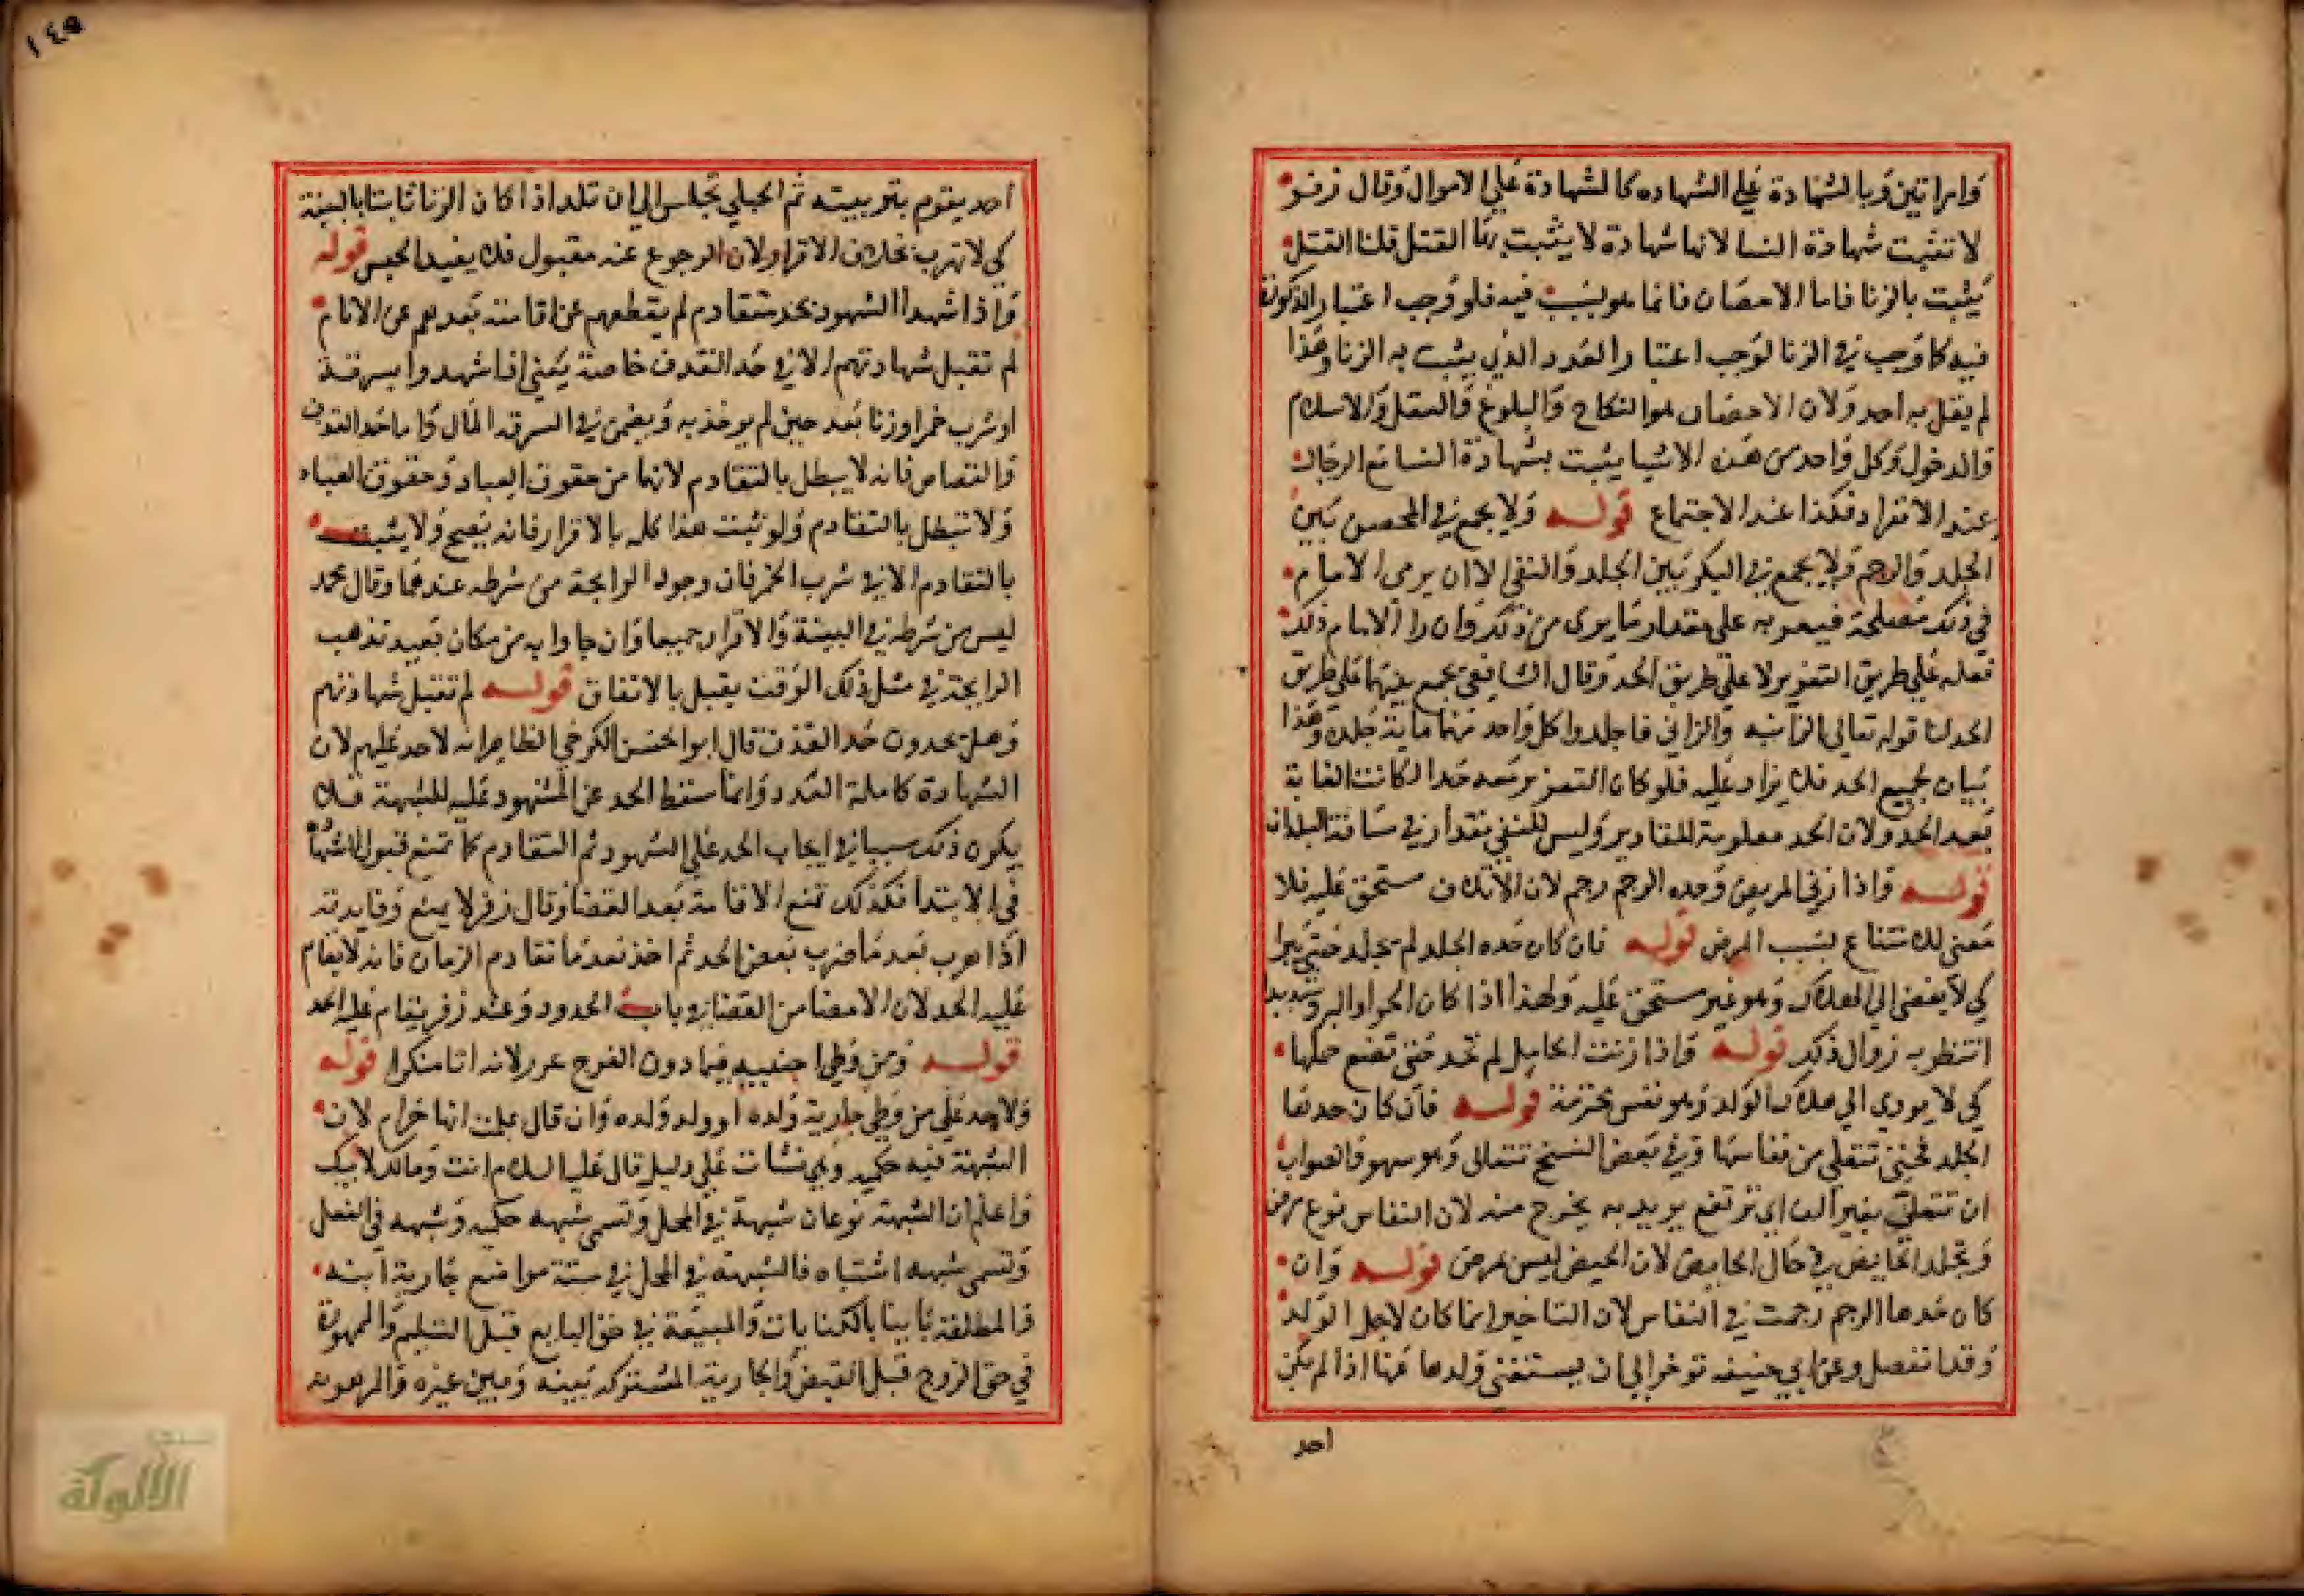 وامراتين وبالشهادة على الشهاده كالشهادة على الاموال وقال زفر
لا تثبت شهادة النسا لانها شهادة لا يثبت بها القتل قلنا القتل
يثبت بالزنا فاما الاحصان فانما هو بسبب فيه فلو وجب اعتبار الذكورة
فيه كما وجب في الزنا لوجب اعتبار العدد الذي يثبت به الزنا وهذا
لم يقل به احد ولان الاحصان هو النكاح والبلوغ والعقل والاسلام
والدخول وكل واحد من هذه الاشيا يثبت بشهادة النسا مع الرجال
عند الانفراد فكذا عند الاجتماع قوله ولا يجمع في المحصن بين
الجلد والرجم ولا يجمع في البكر بين الجلد والنفي الا ان يرى الامام
في ذلك مصلحة فيعزر به على مقدار ما يرى من ذلك وان را الامام ذلك
فعله على طريق التعزير لا على طريق الحد وقال الشافعي يجمع بينهما على طريق
الحد لنا قوله تعالى الزانيه والزاني فاجلدوا كل واحد منهما ماية جلدة وهذا
بيان لجميع الحد فلا يزاد عليه فلو كان التعزير بعد حدا لكانت الغاية
بعد الحد ولان الحد معلومة المقادير وليس للنفي مقدار في مسافة البلدان
قوله واذا زنى المريض وحده الرجم رجم لان الاتلاف مستحق عليه فلا
معنى للامتناع بسبب المرض قوله فان كان حده الجلد لم يجلد حتى يبرا
كي لا يفضي الى الهلاك وهو غير مستحق عليه ولهذا اذا كان الحر او البرد شديدا
انتظر به زوال ذلك قوله واذا زنت الحامل لم تحد حتى تضع حملها
كي لا يودي الى هلاك الولد وهو نفس محترمة قوله فان كان حدها
الجلد فحتى تتعلى من نفاسها وفي بعض النسخ تتعالى وهو سهو والصواب
ان تتعلى بغير الف اي ترتفع يريد به يخرج منه لان النفاس نوع مرض
وتجلد الحايض في حال الحيض لان الحيض ليس بمرض قوله وان
كان حدها الرجم رجمت في النفاس لان التاخير انما كان لاجل الولد
وقد انفصل وعن ابي حنيفه توخر الى ان يستغني ولدها عنها اذا لم يكن
احد
١٤٥
احد يقوم بتربيته ثم الحبلى تحبس الى ان تلد اذا كان الزنا ثابتا بالبينة
كي لا تهرب بخلاف الاقرار لان الرجوع عنه مقبول فلا يفيد الحبس قوله
واذا شهدا الشهود بحد متقادم لم يقطعهم عن اقامته بعدهم عن الامام
لم تقبل شهادتهم الا في حد القذف خاصة يعني اذا شهدوا بسرقة
او شرب خمر او زنا بعد حين لم يوخذ به ويضمن في السرقة المال واما حد القذف
والقصاص فانه لا يبطل بالتقادم لانها من حقوق العباد وحقوق العباد
ولا تبطل بالتقادم ولو ثبت هذا كله بالاقرار فانه يصح ولا يثبت
بالتقادم الا في شرب الخمر فان وجود الرايحة من شرطه عندهما وقال محمد
ليس من شرطه في البينة والاقرار جميعا وان جاوا به من مكان بعيد تذهب
الرايحة في مثل ذلك الوقت يقبل بالاتفاق قوله لم تقبل شهادتهم
وهل يحدون حد القذف قال ابو الحسن الكرخي الظاهر انه لاحد عليهم لان
الشهادة كاملة العدد وانما سقط الحد عن المشهود عليه للشبهة فلا
يكون ذلك سببا في ايجاب الحد على الشهود ثم التقادم كما تمنع قبول الشهادة
في الابتدا فكذلك تمنع الاقامة بعد القضا وقال زفر لا يمنع وفايدته
اذا هرب بعد ما ضرب بعض الحد ثم اخذ بعد ما تقادم الزمان فانه لا يقام
عليه الحد لان الامضا من القضا في باب الحدود وعند زفر يقام عليه الحد
قوله ومن وطي اجنبيه فيما دون الفرج عزر لانه اتا منكرا قوله
ولاحد على من وطي جارية ولده او ولد ولده وان قال علمت انها حرام لان
الشبهة فيه حكميه وهي نشات على دليل قال عليه السلام انت ومالك لابيك
واعلم ان الشبهة نوعان شبهة في المحل وتسمى شبهه حكميه وشبهه في الفعل
وتسمى شبهه اشتباه فالشبهة في المحل في ستة مواضع جارية ابنه
والمطلقة باينا بالكنايات والمبيعة في حق البايع قبل التسليم والممهورة
في حق الزوج قبل القبض والجارية المشتركه بينه وبين غيره والمرهونه
الألوكة